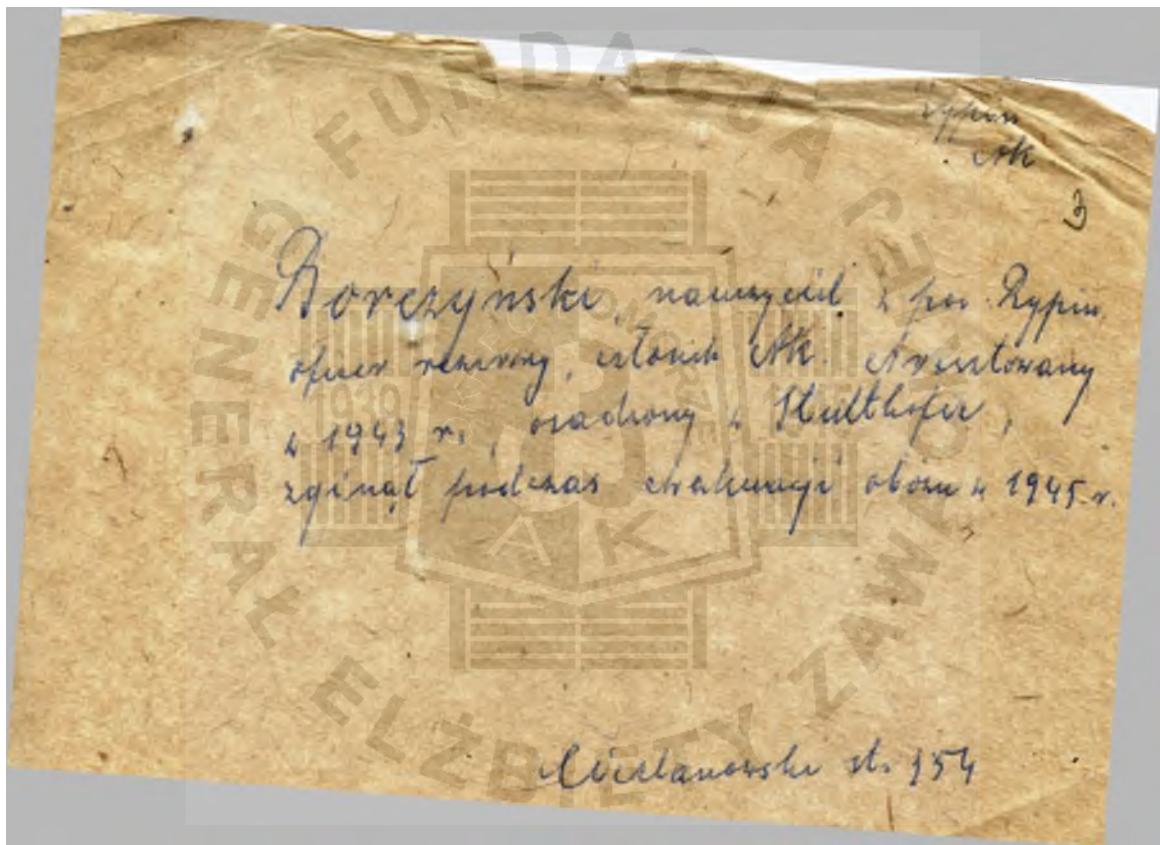 Rypin
AK
3
Borczyński, nauczyciel z pow. Rypin.
oficer rezerwy, członek AK. Aresztowany
w 1943 r., osadzony w Stutthofie,
zginął podczas ewakuacji obozu w 1945 r.
st. 154
FUNDACJA GENERAŁ ELŻBIETY ZAWACKIEJ
1939
AK